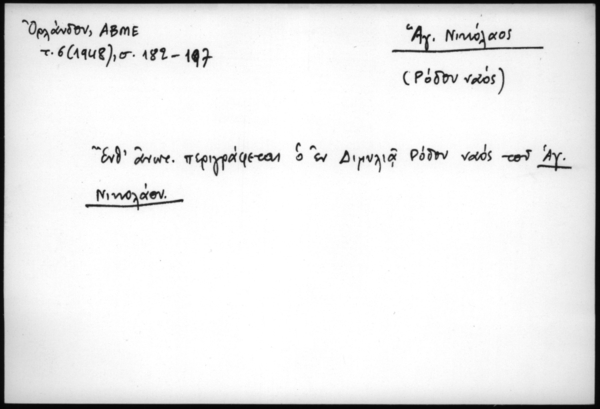 Ὀρλάνδου, ΑΒΜΕ
τ. 6 (1948), σ. 182-197
Ἅγ. Νικόλαος
(Ρόδου ναός)
Ἔνθ' ἄνωτ. περιγράφεται ὁ ἐν Διμυλιᾷ Ρόδου ναός τοῦ Ἁγ.
Νικολάου.